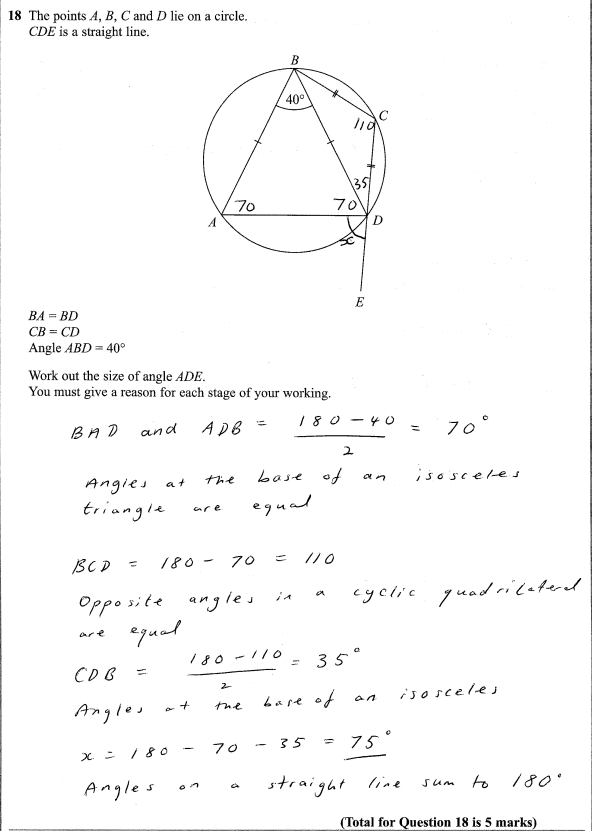 18 The points A, B, C and D lie on a circle.
CDE is a straight line.
B
40°
C
110
35
70
70
A
D
x
E
BA = BD
CB = CD
Angle ABD = 40°
Work out the size of angle ADE.
You must give a reason for each stage of your working.
BAD and ADB = 180 - 40 / 2 = 70°
Angles at the base of an isosceles
triangle are equal
BCD = 180 - 70 = 110
Opposite angles in a cyclic quadrilateral
are equal
CDB = 180 - 110 / 2 = 35°
Angles at the base of an isosceles
x = 180 - 70 - 35 = 75°
Angles on a straight line sum to 180°
(Total for Question 18 is 5 marks)